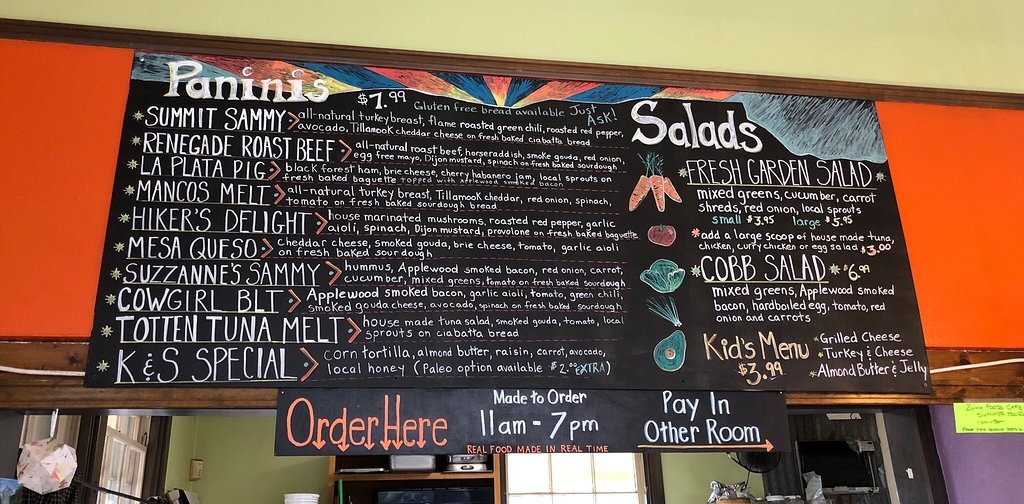 Paninis
$7.99 Gluten free bread available Just Ask!
*SUMMIT SAMMY > all-natural turkey breast, flame roasted green chili, roasted red pepper,
avocado, Tillamook cheddar cheese on fresh baked ciabatta bread
*RENEGADE ROAST BEEF > all-natural roast beef, horseraddish, smoke gouda, red onion,
egg free mayo, Dijon mustard, spinach on fresh baked sourdough
*LA PLATA PIG > black forest ham, brie cheese, cherry habanero jam, local sprouts on
fresh baked baguette topped with Applewood smoked bacon
*MANCOS MELT > all-natural turkey breast, Tillamook cheddar, red onion, spinach,
tomato on fresh baked sourdough bread
*HIKER'S DELIGHT > house marinated mushrooms, roasted red pepper, garlic
aioli, spinach, Dijon mustard, provolone on fresh baked baguette
*MESA QUESO > cheddar cheese, smoked gouda, brie cheese, tomato, garlic aioli
on fresh baked sourdough
*SUZZANNE'S SAMMY > hummus, Applewood smoked bacon, red onion, carrot,
cucumber, mixed greens, tomato on fresh baked sourdough
*COWGIRL BLT > Applewood smoked bacon, garlic aioli, tomato, green chili,
smoked gouda cheese, avocado, spinach on fresh baked sourdough
*TOTTEN TUNA MELT > house made tuna salad, smoked gouda, tomato, local
sprouts on ciabatta bread
*K & S SPECIAL > corn tortilla, almond butter, raisin, carrot, avocado,
local honey (Paleo option available $2.00 EXTRA)
Salads
*FRESH GARDEN SALAD*
mixed greens, cucumber, carrot
shreds, red onion, local sprouts
small $3.95 large $5.95
*add a large scoop of house made tuna,
chicken, curry chicken or egg salad $3.00
*COBB SALAD* $6.99
mixed greens, Applewood smoked
bacon, hardboiled egg, tomato, red
onion and carrots
Kid's Menu
$3.99
*Grilled Cheese
*Turkey & Cheese
*Almond Butter & Jelly
Order Here
Made to Order
11am - 7pm
REAL FOOD MADE IN REAL TIME
Pay In
Other Room